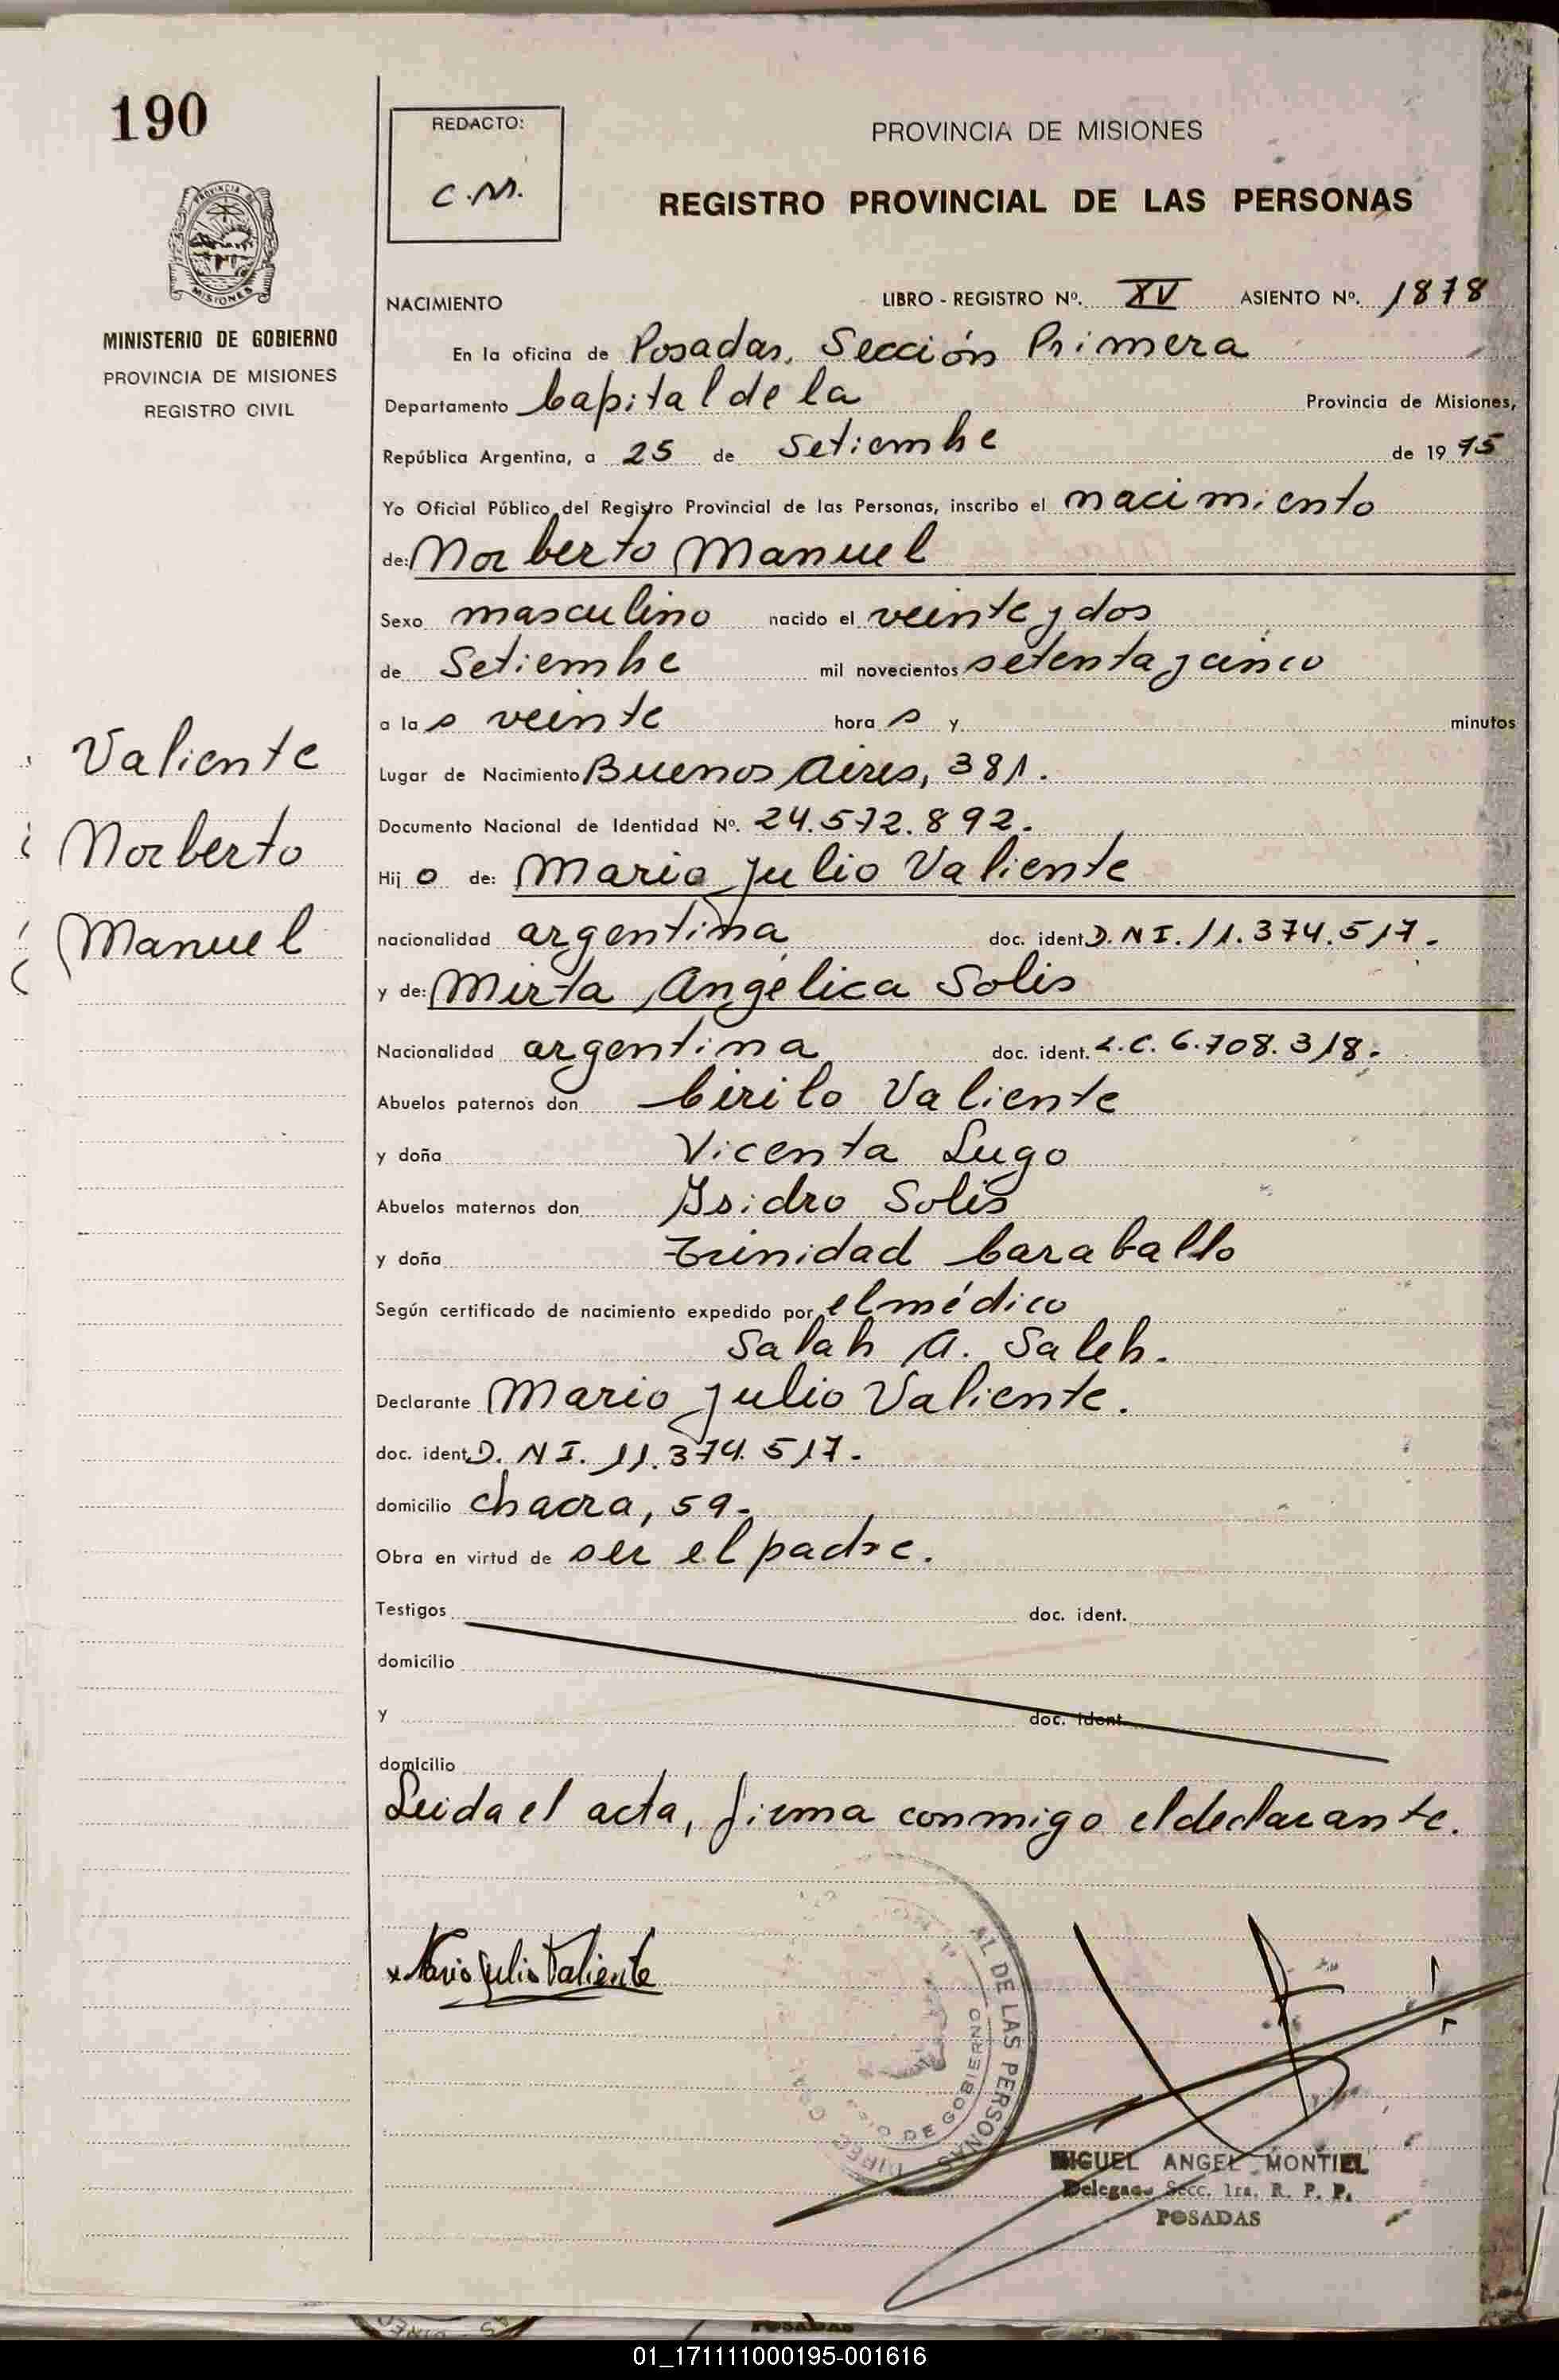 190
REDACTO:
C.M.
PROVINCIA DE MISIONES
REGISTRO PROVINCIAL DE LAS PERSONAS
PROVINCIA DE
MISIONES
MINISTERIO DE GOBIERNO
PROVINCIA DE MISIONES
REGISTRO CIVIL
NACIMIENTO LIBRO - REGISTRO Nº. XV ASIENTO Nº. 1878
En la oficina de Posadas, Sección Primera
Departamento Capital de la Provincia de Misiones,
República Argentina, a 25 de Setiembre de 1975
Yo Oficial Público del Registro Provincial de las Personas, inscribo el nacimiento
de: Norberto Manuel
Sexo masculino nacido el veinte y dos
de Setiembre mil novecientos setenta y cinco
a las veinte horas y minutos
Valiente
Norberto
Manuel
Lugar de Nacimiento Buenos Aires, 381.
Documento Nacional de Identidad Nº. 24.572.892.
Hijo de: Mario Julio Valiente
nacionalidad argentina doc. ident. D.N I. 11.374.517.
y de: Mirta Angélica Solis
Nacionalidad argentina doc. ident. L.C. 6.708.318.
Abuelos paternos don Cirilo Valiente
y doña Vicenta Lugo
Abuelos maternos don Isidro Solis
y doña Trinidad Caraballo
Según certificado de nacimiento expedido por el médico
Salah A. Saleh.
Declarante Mario Julio Valiente.
doc. ident. D. N I. 11.374.517.
domicilio chacra, 59.
Obra en virtud de ser el padre.
Testigos doc. ident.
domicilio
y doc. ident.
domicilio
Leida el acta, firma conmigo el declarante.
x Mario Julio Valiente
AL DE LAS PERSONAS
DE GOBIERNO
MIGUEL ANGEL MONTIEL
Delegado Secc. 1ra. R. P. P.
POSADAS
POSADAS
01_171111000195-001616